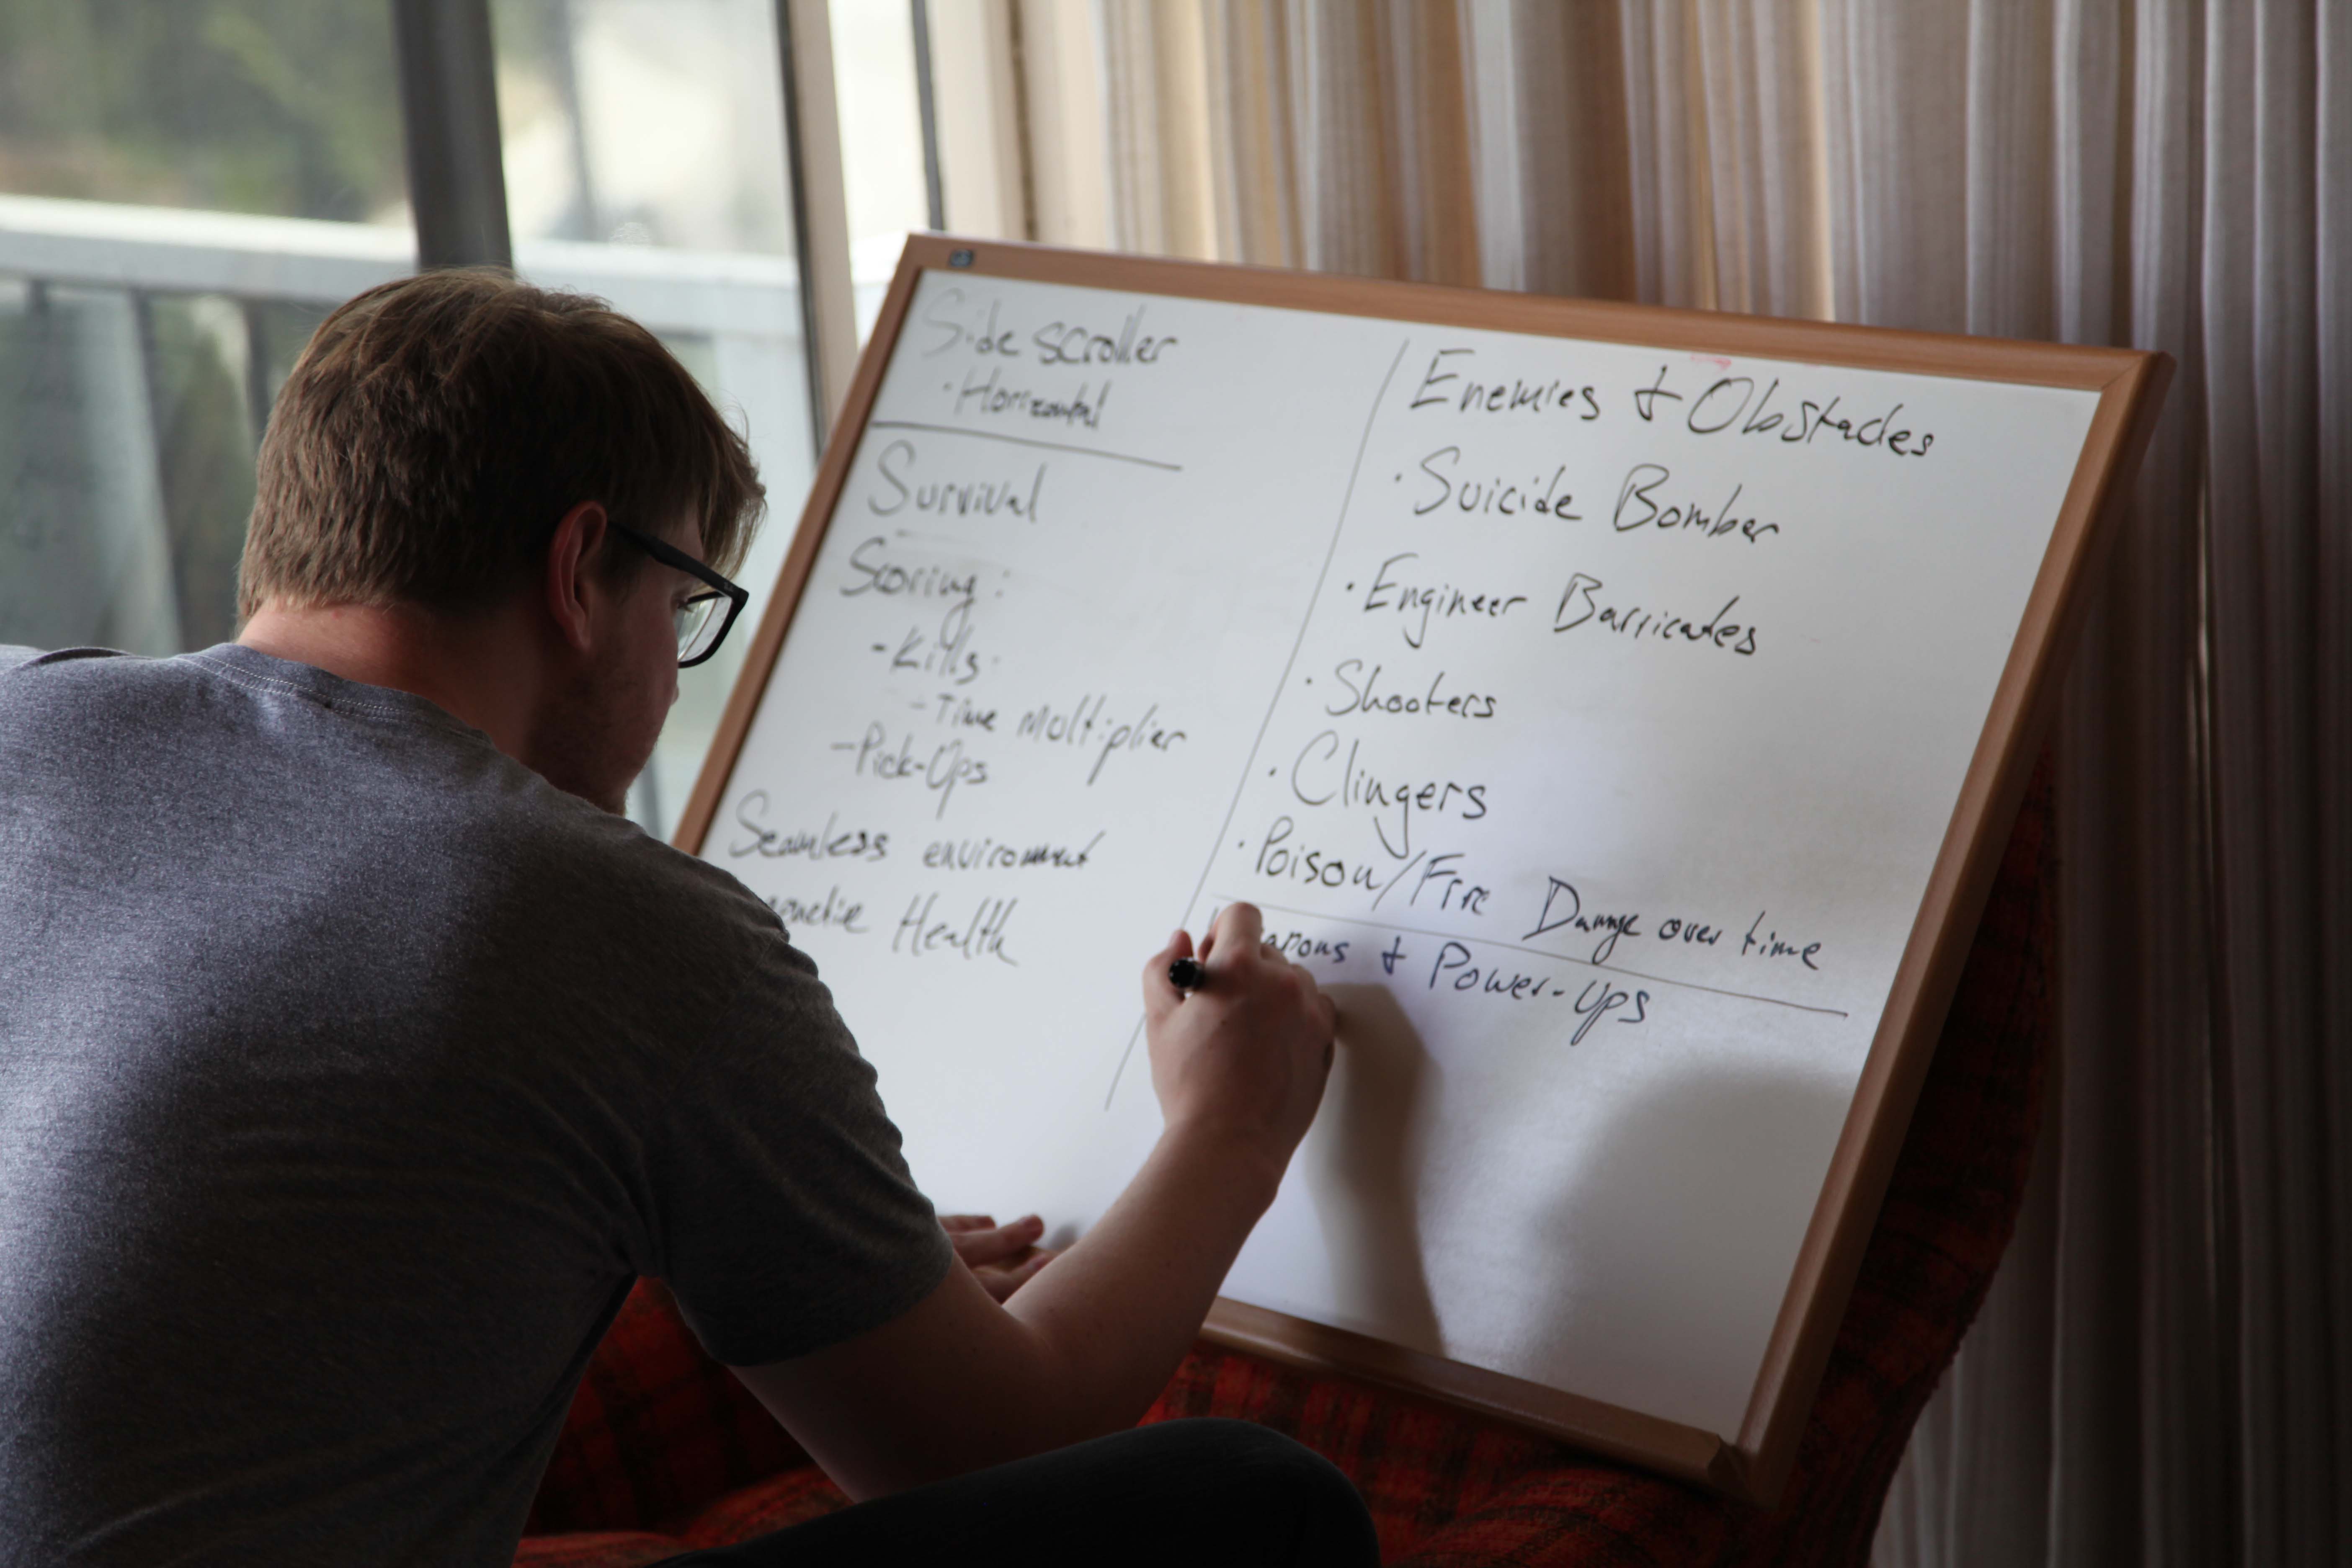 Side scroller
· Horizontal
Survival
Scoring:
- Kills
- Time Multiplier
- Pick-Ups
Seamless enviroment
Health
Enemies & Obstacles
· Suicide Bomber
· Engineer Barricates
· Shooters
· Clingers
· Poison/Fire Damage over time
& Power-Ups